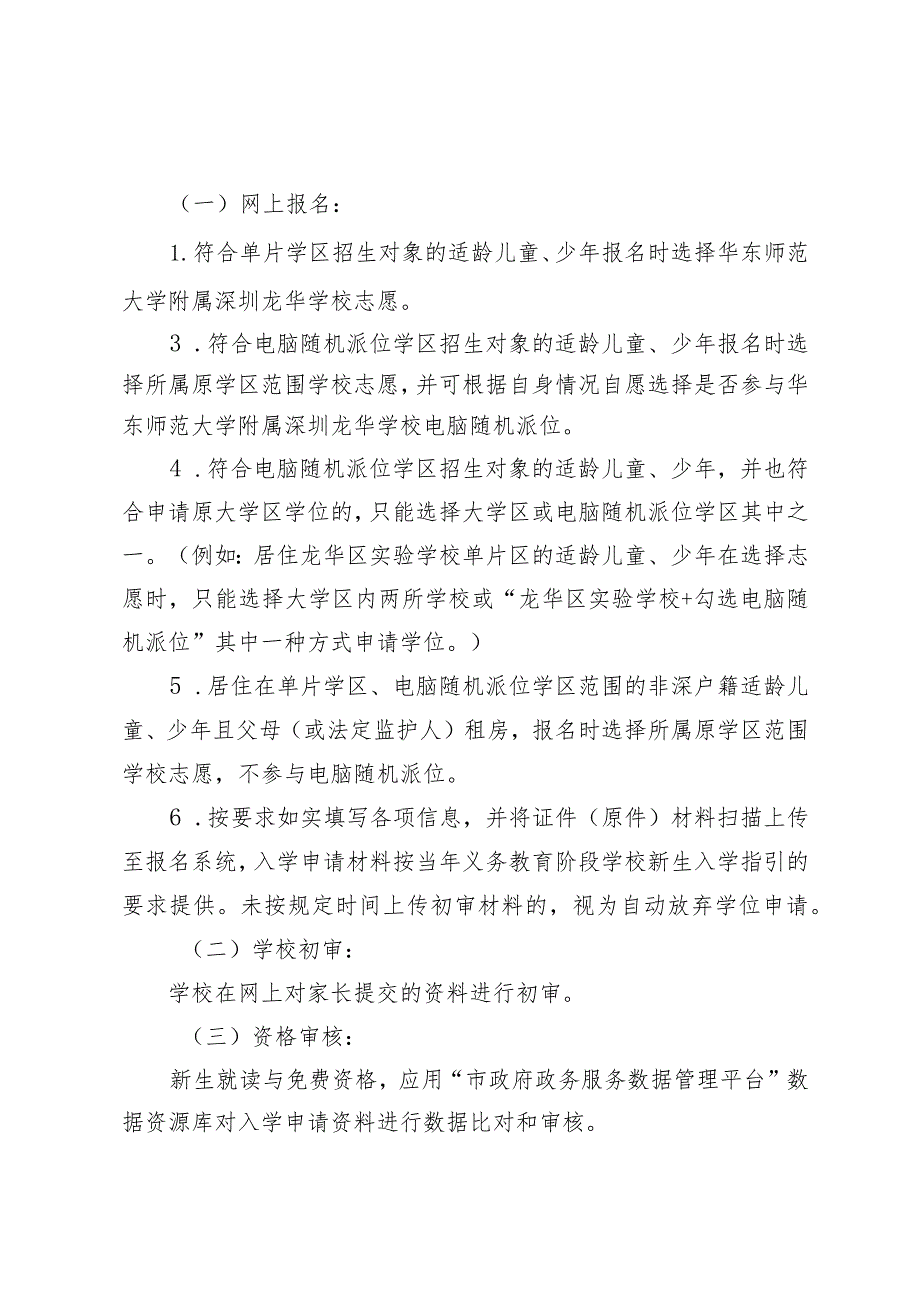 （一）网上报名：
1.符合单片学区招生对象的适龄儿童、少年报名时选择华东师范
大学附属深圳龙华学校志愿。
3.符合电脑随机派位学区招生对象的适龄儿童、少年报名时选
择所属原学区范围学校志愿，并可根据自身情况自愿选择是否参与华
东师范大学附属深圳龙华学校电脑随机派位。
4.符合电脑随机派位学区招生对象的适龄儿童、少年，并也符
合申请原大学区学位的，只能选择大学区或电脑随机派位学区其中之
一。（例如：居住龙华区实验学校单片区的适龄儿童、少年在选择志
愿时，只能选择大学区内两所学校或“龙华区实验学校+勾选电脑随
机派位”其中一种方式申请学位。）
5.居住在单片学区、电脑随机派位学区范围的非深户籍适龄儿
童、少年且父母（或法定监护人）租房，报名时选择所属原学区范围
学校志愿，不参与电脑随机派位。
6.按要求如实填写各项信息，并将证件（原件）材料扫描上传
至报名系统，入学申请材料按当年义务教育阶段学校新生入学指引的
要求提供。未按规定时间上传初审材料的，视为自动放弃学位申请。
（二）学校初审：
学校在网上对家长提交的资料进行初审。
（三）资格审核：
新生就读与免费资格，应用“市政府政务服务数据管理平台”数
据资源库对入学申请资料进行数据比对和审核。